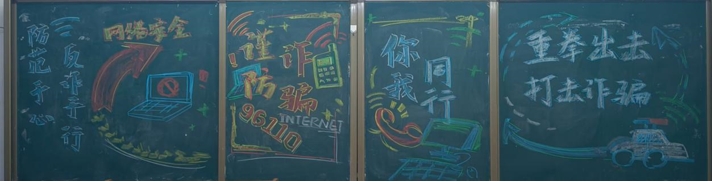 防范于心
反诈于行
网络安全
谨防
诈骗
96110
INTERNET
你我
同行
重拳出去
打击诈骗